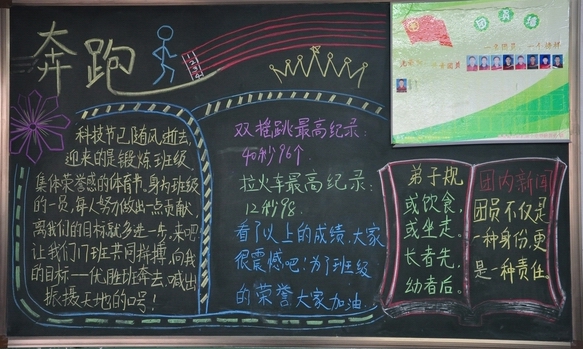 奔跑
1234
科技节已随风逝去,
迎来的是锻炼班级
集体荣誉感的体育节,身为班级
的一员,每人努力做出一点贡献,
离我们的目标就多进一步,来吧
让我们17班共同拼搏,向我
的目标——优胜班奔去,喊出
振撼天地的口号!
双摇跳最高纪录:
40秒96个
拉火车最高纪录:
12秒98
看了以上的成绩,大家
很震感吧!为了班级
的荣誉大家加油.
弟子规
或饮食,
或坐走。
长者先,
幼者后。
团内新闻
团员不仅是
一种身份,更
是一种责任.